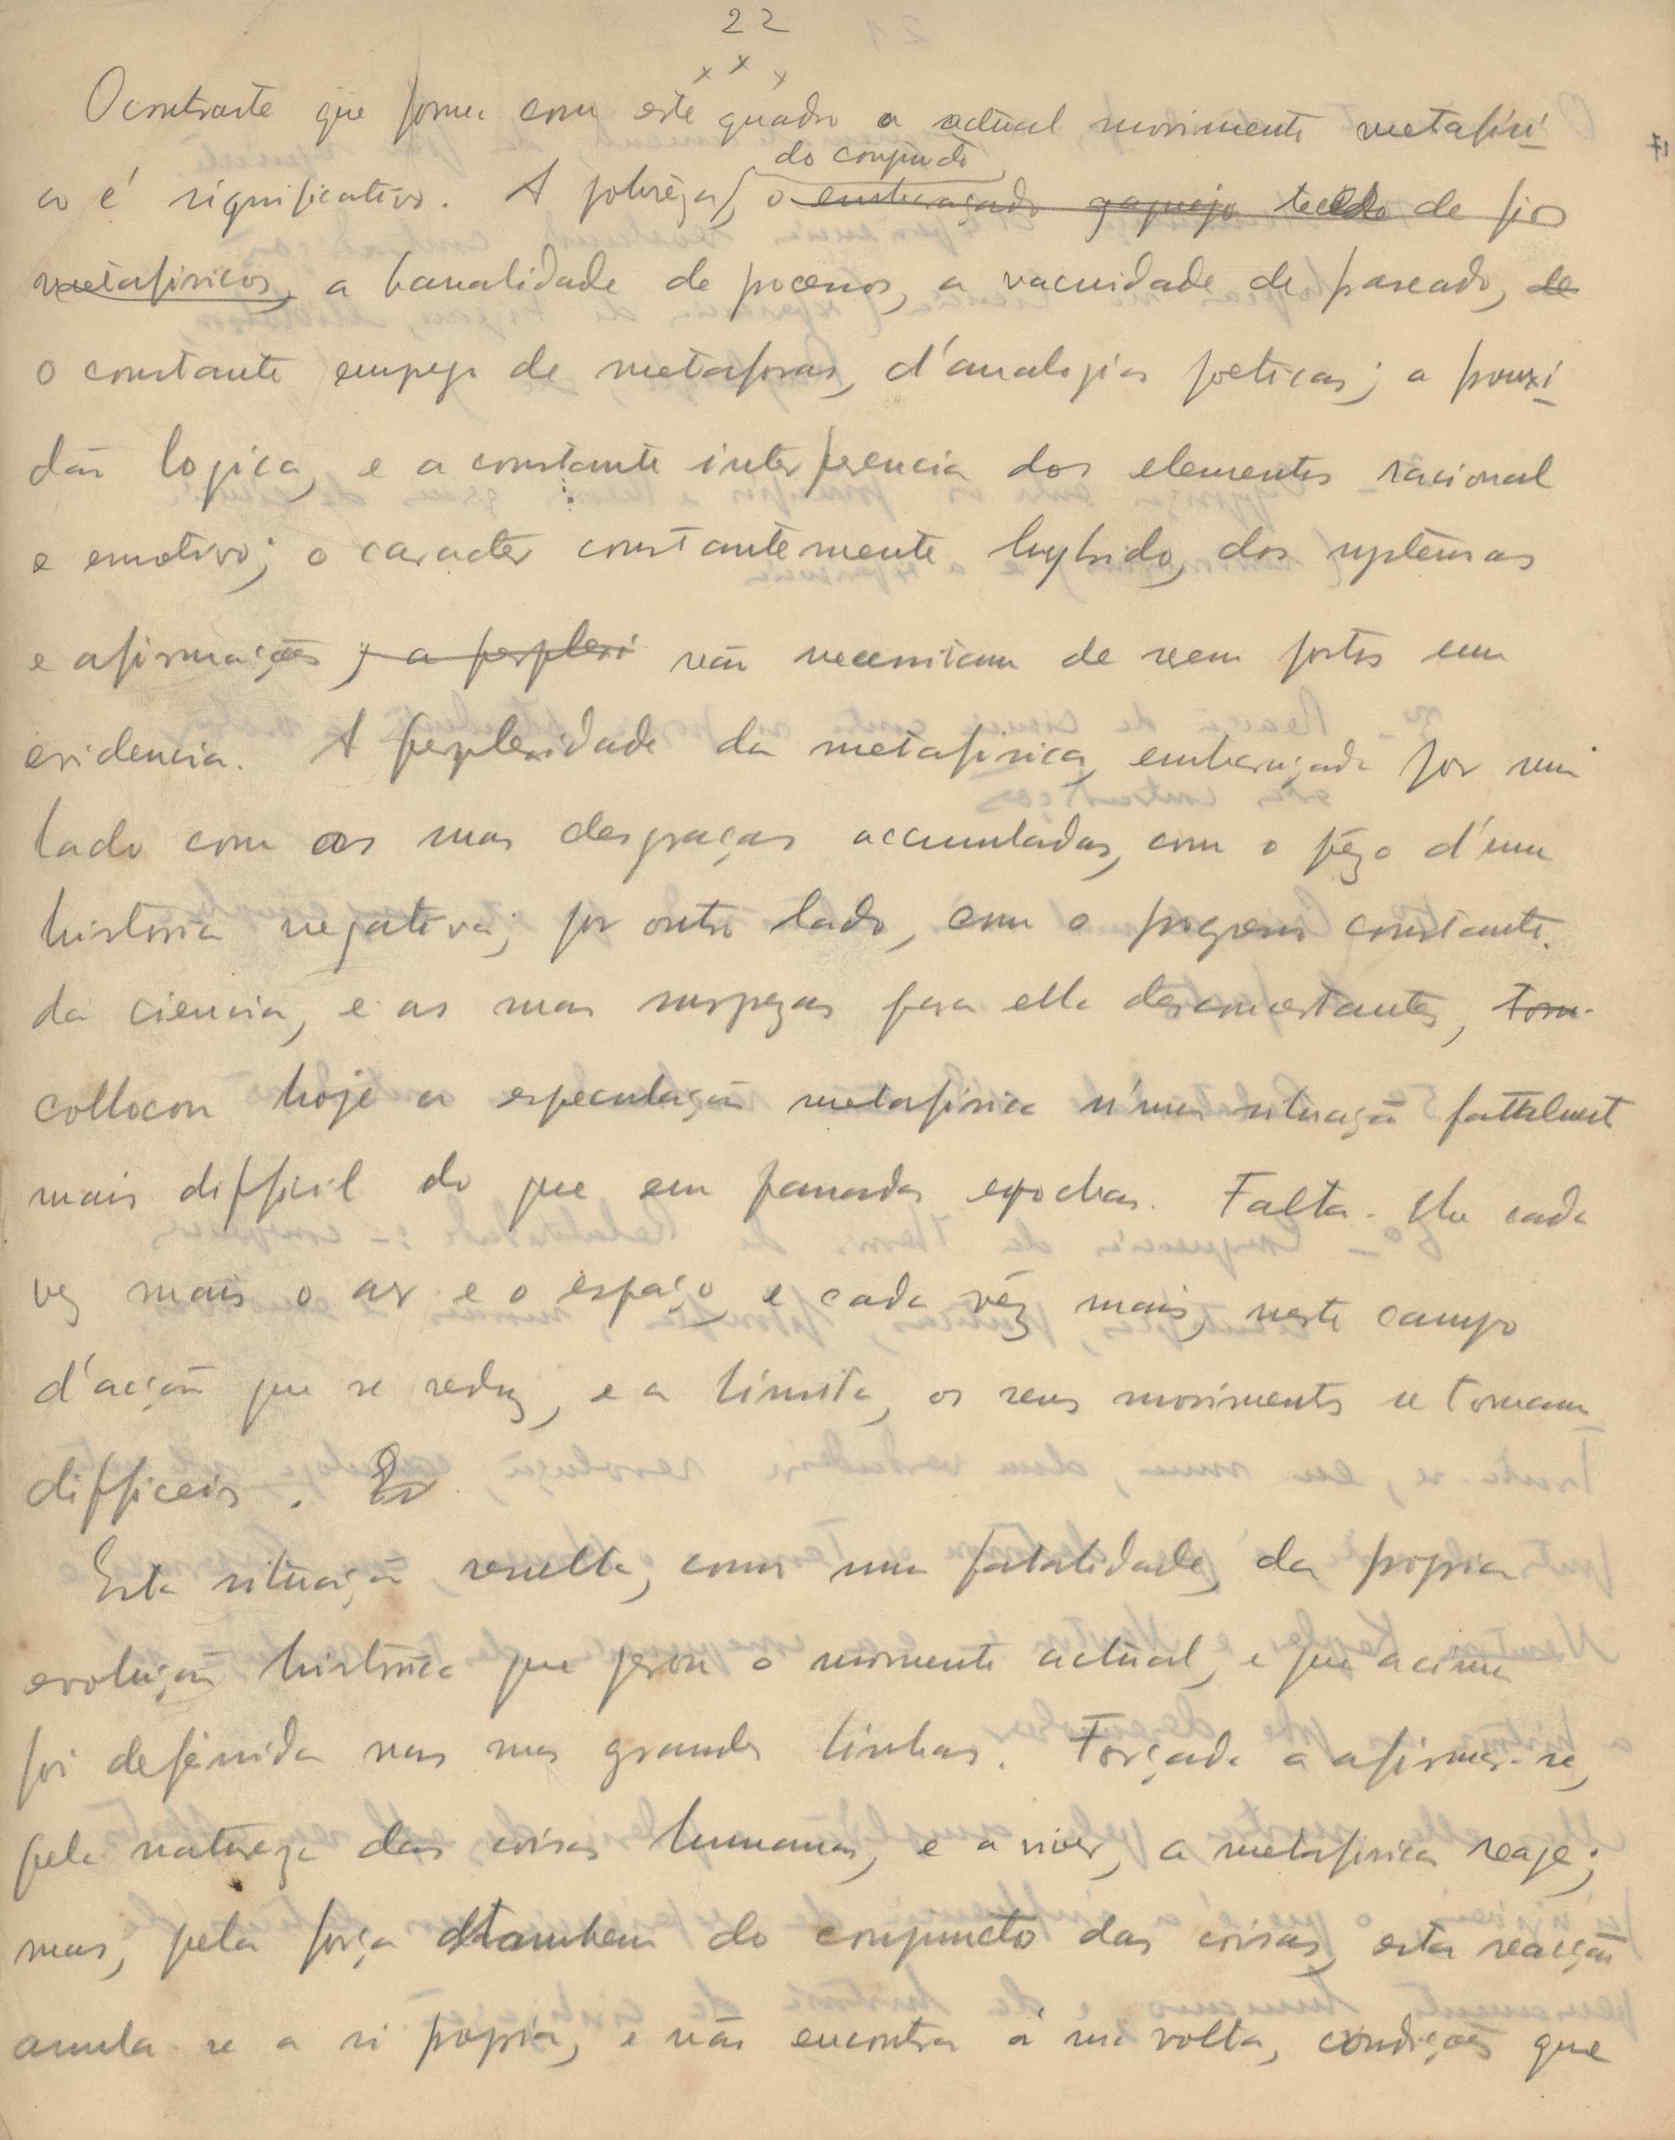 22
x x x
O contraste que forma com este quadro o actual movimento metafisi-
co é significativo. A pobrêza, do conjuncto
o embaraçado tecido de fios
metafisicos, a banalidade de processos, a vacuidade de passado, de
o constante emprego de metaforas, d'analogias poeticas; a frouxi-
dão logica, e a constante interferencia dos elementos racional
e emotivo; o caracter constantemente hybrido, dos systemas
e afirmações ; a perplexi não necessitam de serem postos em
evidencia. A perplexidade da metafisica, embaraçada por um
lado com as suas desgraças accumuladas, com o pêzo d'uma
historia negativa; por outro lado, com o progresso constante.
da ciencia, e as suas surprezas para ella desconcertantes, torn-
collocou hoje a especulação metafisica n'uma situação fatalment
mais difficil do que em passadas epochas. Falta-lhe cada
vez mais o ar e o espaço, e cada vêz mais, neste campo
d'acção que se reduz, e a limita, os seus movimentos se tornam
difficeis.
Esta situação resulta, como uma fatalidade, da propria
evolução historica que gerou o momento actual, e que acima
foi definida nas suas grandes linhas. Forçada a afirmar-se,
pela natureza das coisas humanas, e a viver, a metafisica reage;
mas, pela força tambem do conjuncto das coisas, esta reacção
annula-se a si propria, e não encontra á sua volta, condições que